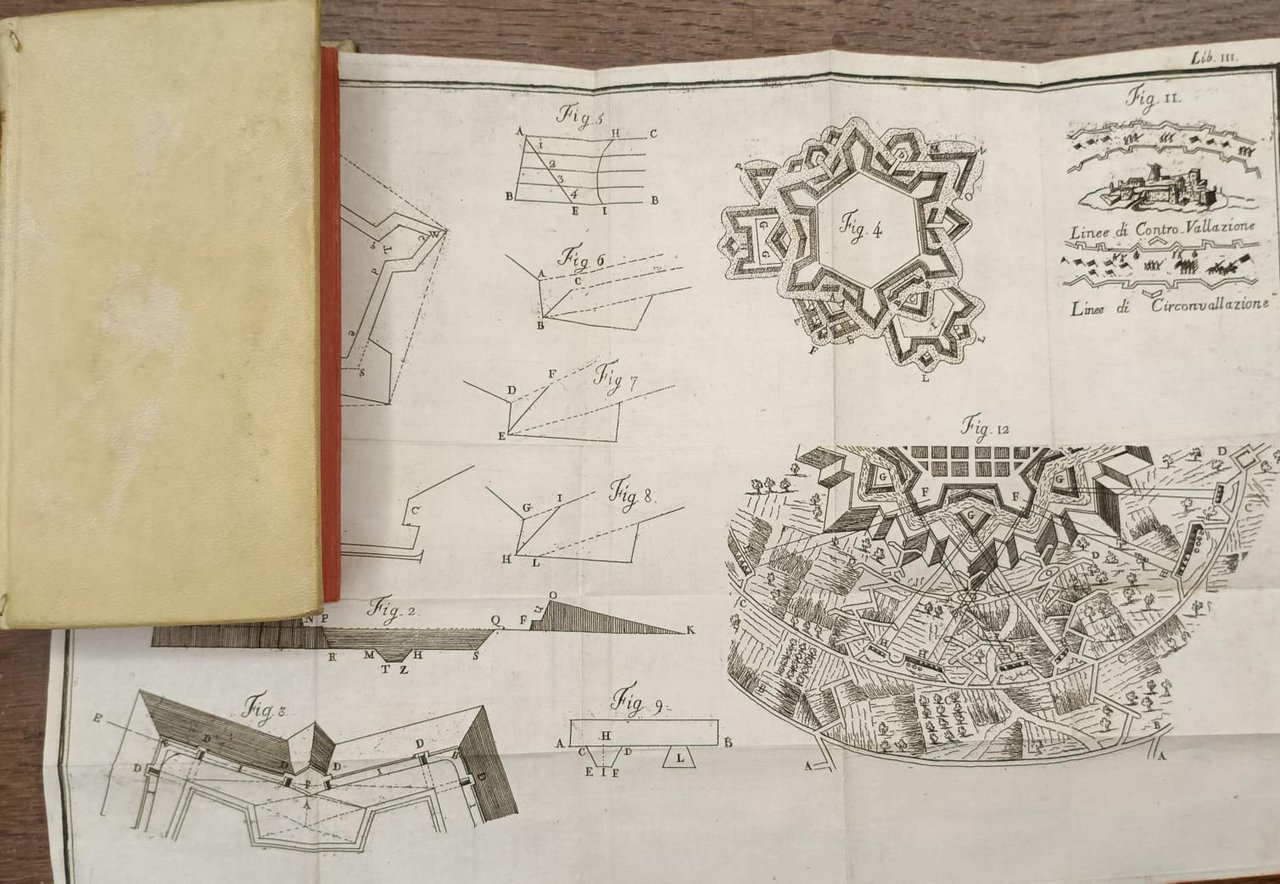 Lib. III.
Fig. 5
A H C
1
2
3
4
B E I B
Fig. 4
G
G
L
Fig. 11.
Linee di Contro-Vallazione
Linee di Circonvallazione
Fig 6
A C
B
Fig 7
D F
E
Fig. 8.
G I
H L
C
S
Fig. 2.
N P Q F u O K
R M H S
T Z
Fig. 3
E D D D D D
A
Fig 9.
H
A C D B
E I F L
Fig. 12
D
G F F G
G
D
H
C C
H
B B
A A